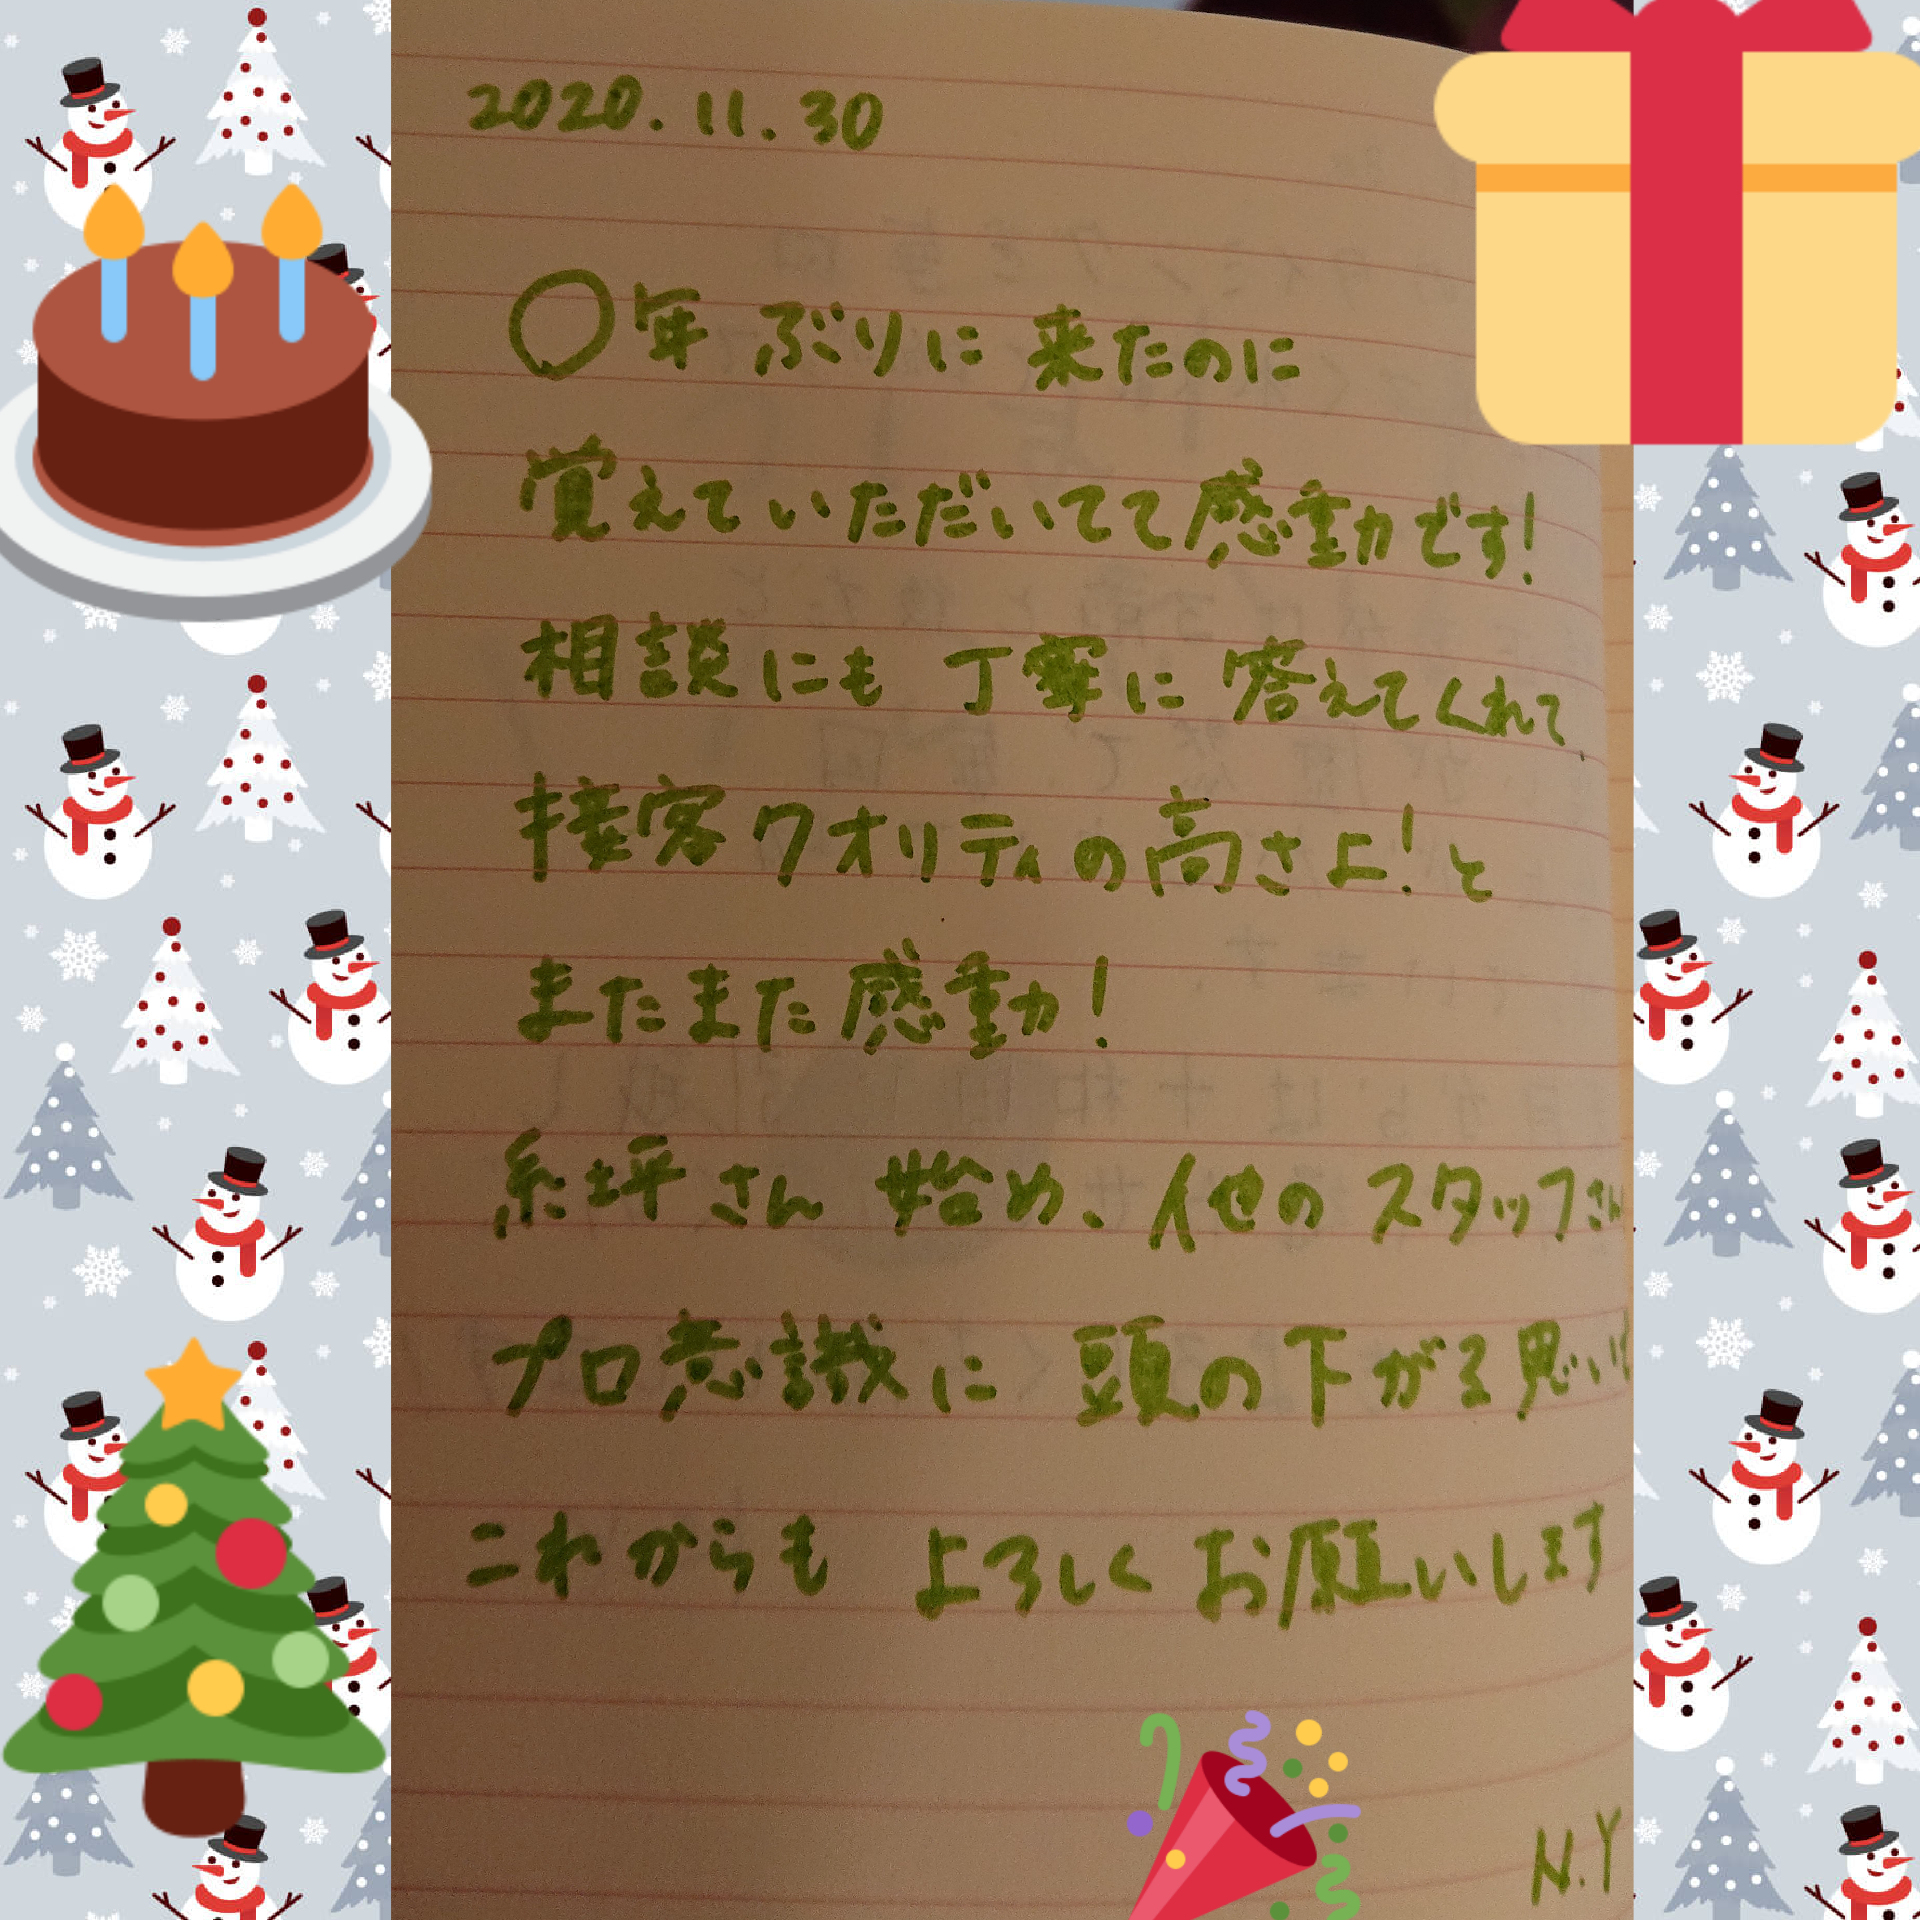 2020.11.30
〇年ぶりに来たのに
覚えていただいてて感動です!
相談にも丁寧に答えてくれて
接客クオリティの高さよ!と
またまた感動!
糸坪さん始め、他のスタッフさん
プロ意識に頭の下がる思い
これからもよろしくお願いします
N.Y